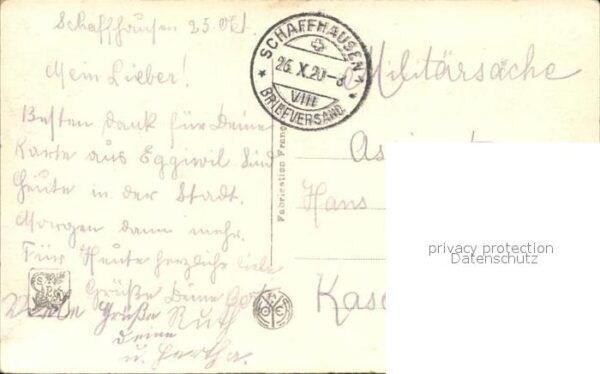 Schaffhausen 25. Okt.
Mein Lieber!
Besten Dank für Deine
Karte aus Eggiwil Sind
heute in der Stadt.
Morgen dann mehr.
Für Heute herzliche liebe
Grüße Deine
Grüße Ruth
Deine
u. Hertha.
SCHAFFHAUSEN 1
26. X. 20
VIII
BRIEFVERSAND
Militärsache
Hans
Fabrication Fran
privacy protection
Datenschutz